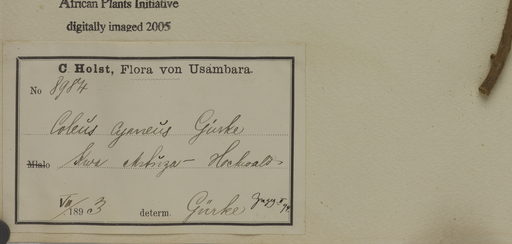 African Plants Initiative
digitally imaged 2005
C Holst, Flora von Usambara.
No 8984
Coleus cyaneus Gürke
Mlalo Kwa Mstuza - Hochwald-
VIII 1893 determ. Gürke